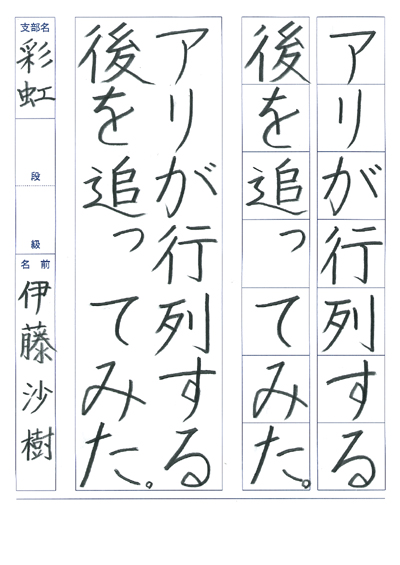 アリが行列する
後を追ってみた。
アリが行列する
後を追ってみた。
支部名
彩虹
段
級
名前
伊藤沙樹